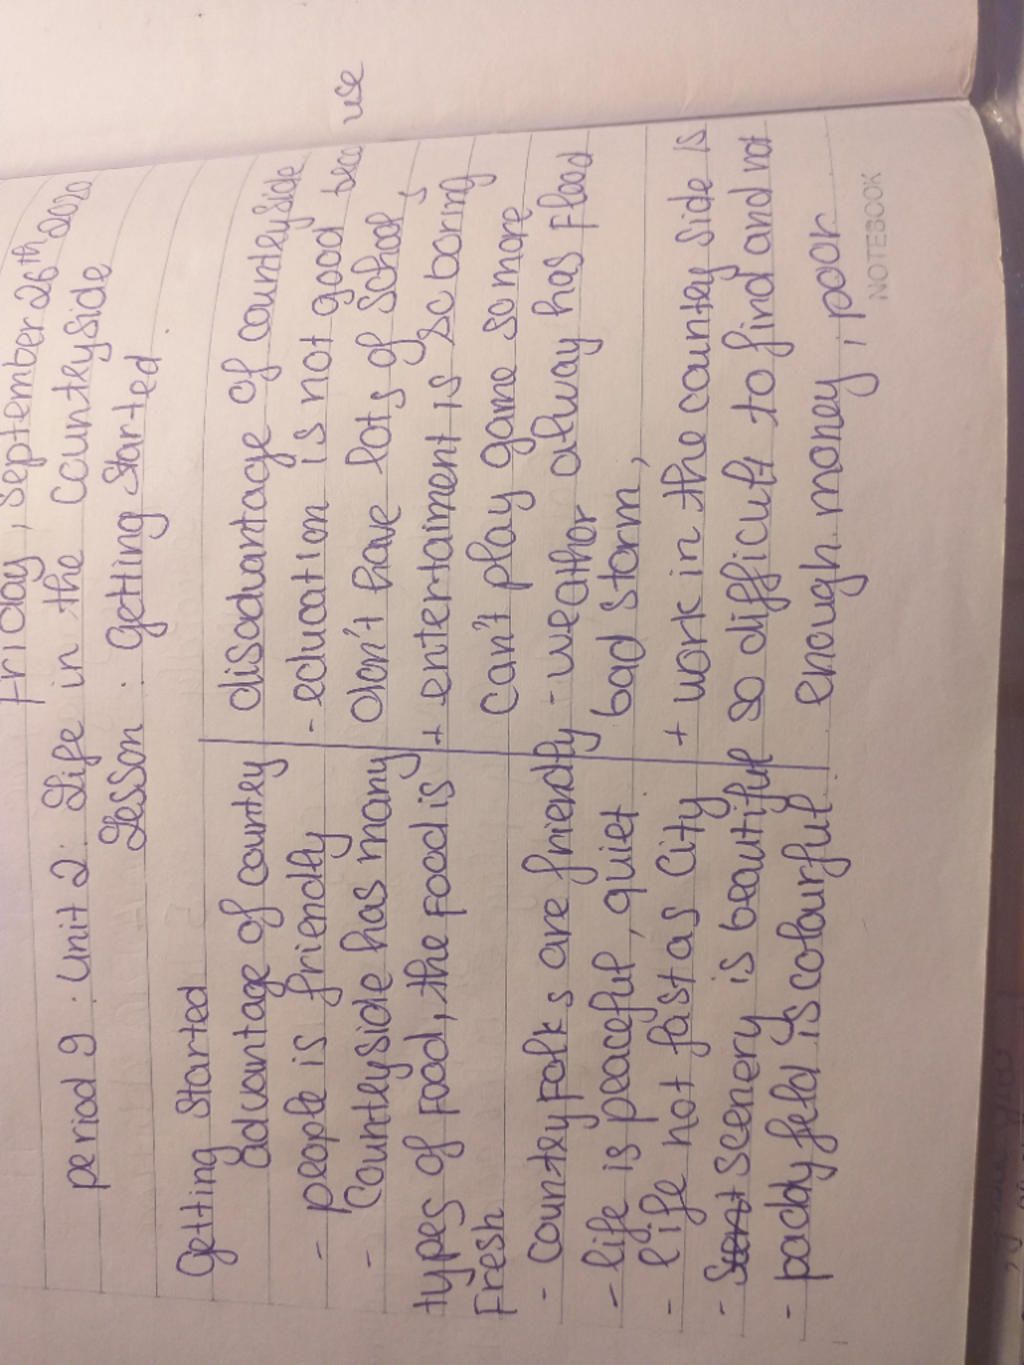 Friday, September 26th 2020
period 9 : Unit 2 : Life in the countryside
Lesson : Getting Started
Getting Started
advantage of country
- people is friendly
- Countryside has many
types of food, the food is
Fresh
- country folk s are friendly
- life is peaceful, quiet
- life not fast as City
- scenery is beautiful
- paddy feld is colourful
disadvantage of countryside
- education is not good because
don't have lots of school,
+ entertaiment is so boring
can't play game so more
- weather alway has flood
bad storm,
+ work in the country side is
so difficult to find and not
enough money, poor
NOTEBOOK